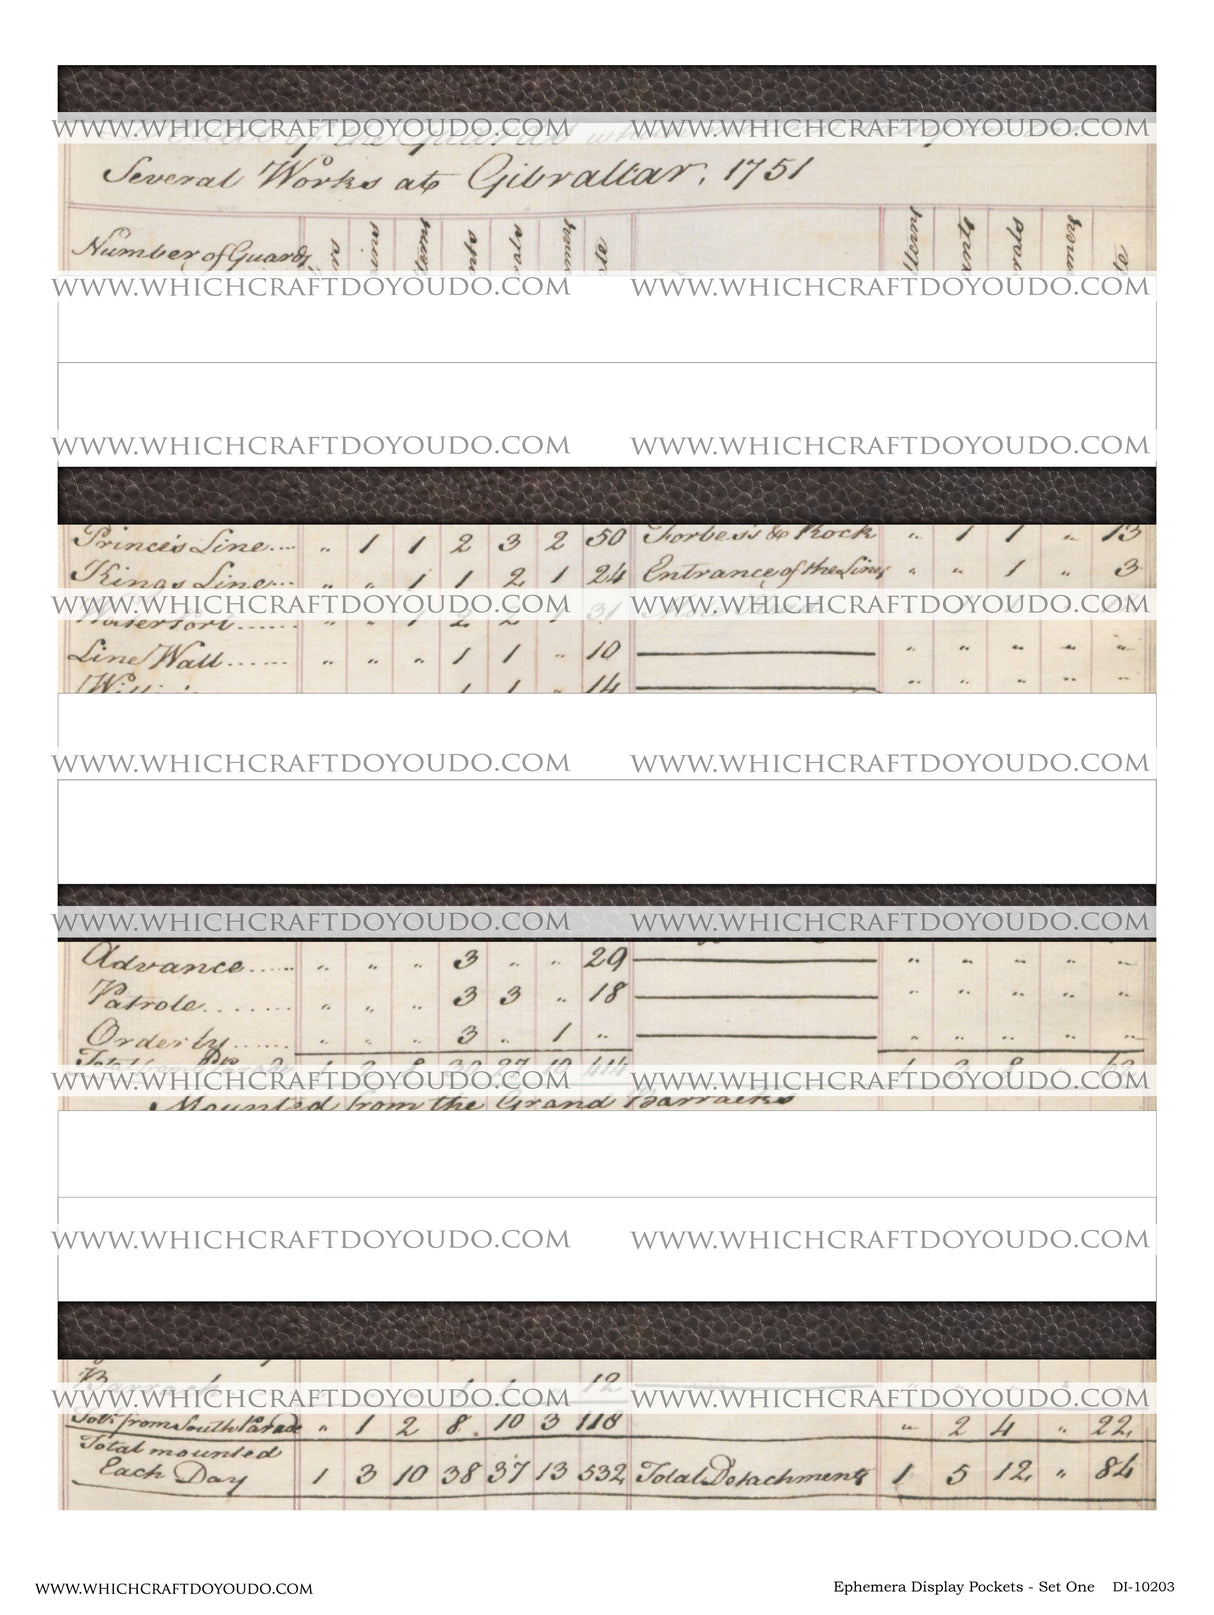 WWW.WHICHCRAFTDOYOUDO.COM WWW.WHICHCRAFTDOYOUDO.COM
of the Guards
Several Works at Gibraltar, 1751
Number of Guards
WWW.WHICHCRAFTDOYOUDO.COM WWW.WHICHCRAFTDOYOUDO.COM
WWW.WHICHCRAFTDOYOUDO.COM WWW.WHICHCRAFTDOYOUDO.COM
Princes Line.... " 1 1 2 3 2 50 Forbess & Rock " 1 1 " 13
Kings Line... " " 1 1 2 1 24 Entrance of the Lines " " 1 " 3
WWW.WHICHCRAFTDOYOUDO.COM WWW.WHICHCRAFTDOYOUDO.COM
Waterfort...... " " 1 2 2 1 31
Line Wall...... " " " 1 1 " 10 " " " " "
1 1 " 14 " " " " "
WWW.WHICHCRAFTDOYOUDO.COM WWW.WHICHCRAFTDOYOUDO.COM
WWW.WHICHCRAFTDOYOUDO.COM WWW.WHICHCRAFTDOYOUDO.COM
Advance..... " " " 3 " " 29 " " " " "
Patrole........ " " " 3 3 " 18 " " " " "
Orderly...... " " " 3 " 1 " " " " " "
WWW.WHICHCRAFTDOYOUDO.COM WWW.WHICHCRAFTDOYOUDO.COM
Mounted from the Grand Barracks
WWW.WHICHCRAFTDOYOUDO.COM WWW.WHICHCRAFTDOYOUDO.COM
12
WWW.WHICHCRAFTDOYOUDO.COM WWW.WHICHCRAFTDOYOUDO.COM
Totl. from South Parade " 1 2 8 10 3 118 " 2 4 " 22
Total mounted
Each Day 1 3 10 38 37 13 532 Total Detachments 1 5 12 " 84
WWW.WHICHCRAFTDOYOUDO.COM Ephemera Display Pockets - Set One DI-10203